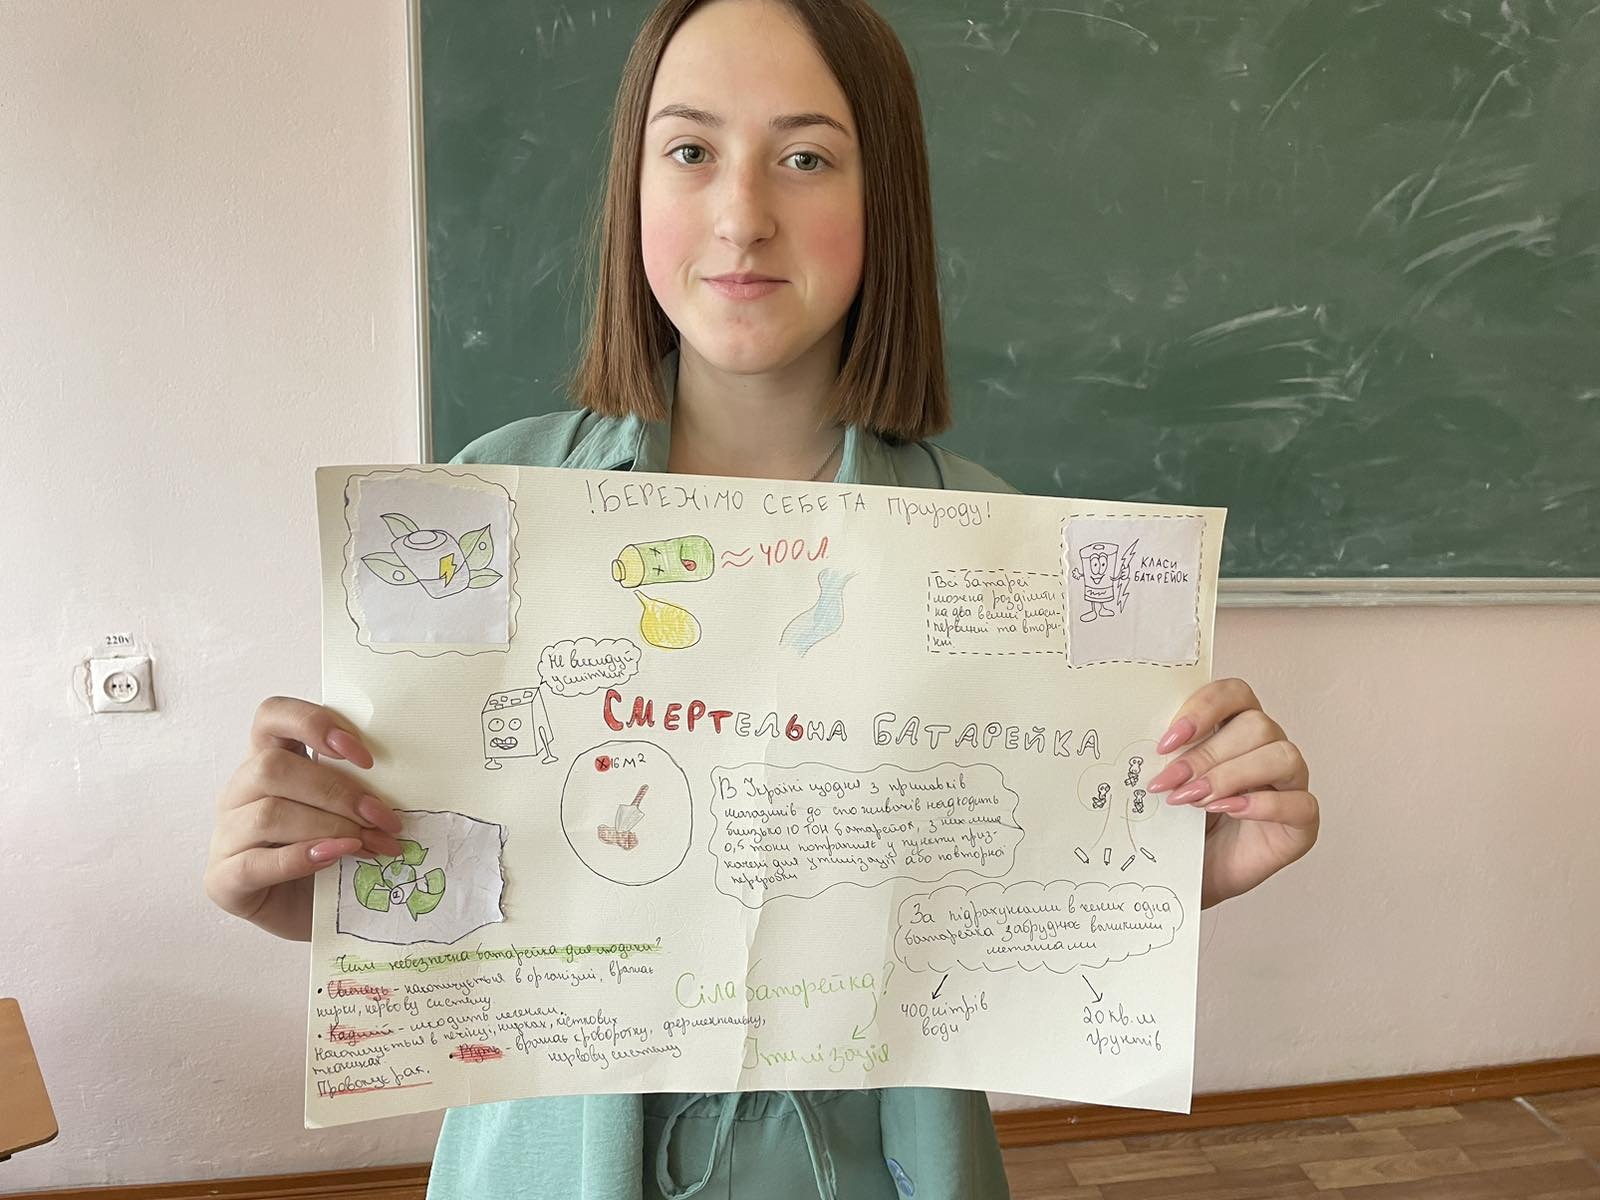 220v
!БЕРЕЖІМО СЕБЕ ТА природу!
≈400л
КЛАСИ
БАТАРЕЙОК
Всі батареї
можна розділити
на два великі класи-
первинні та втори-
нні
Не викидуй
у смітник
СМЕРТЕЛЬНА БАТАРЕЙКА
X16м²
В Україні щодня з прилавків
магазинів до споживачів надходить
близько 10 тон батарейок, з них лише
0,5 тони потрапляє у пункти приз-
начені для утилізації або повторної
переробки
За підрахунками вчених одна
батарейка забруднює важкими
металами
400 літрів
води
20 кв.м
ґрунтів
Чим небезпечна батарейка для людини?
• Свинець - накопичується в організмі, вражає
нирки, нервову систему.
• Кадмій - шкодить легеням.
Накопичується в печінці, нирках, кісткових
тканинах.
Провокує рак.
• Ртуть - вражає кроворотку, ферментальну,
нервову систему
Сіла батарейка?
Утилізація